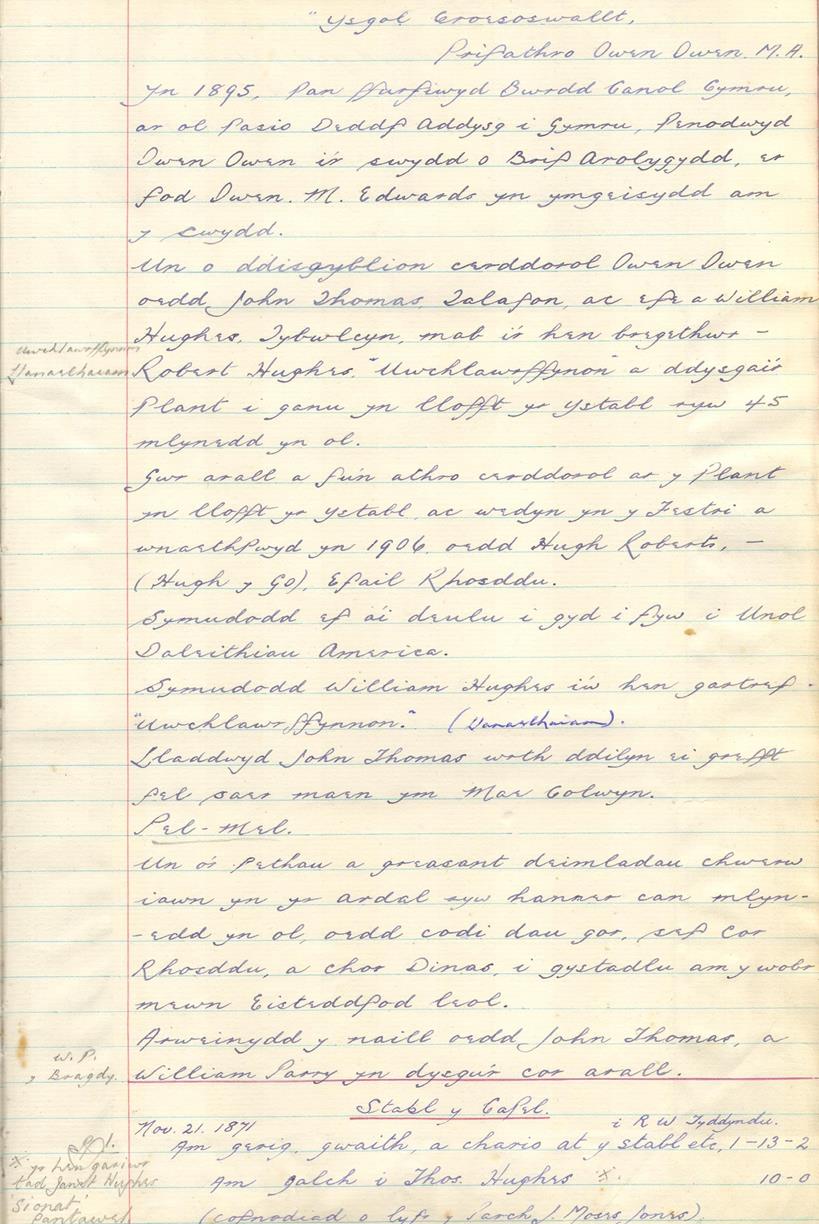 "Ysgol Croesoswallt,
Prifathro Owen Owen. M.A.
Yn 1895, Pan ffurfiwyd Bwrdd Canol Cymru,
ar ol Pasio Deddf Addysg i Gymru, Penodwyd
Owen Owen i'r swydd o Brif Arolygydd, er
fod Owen. M. Edwards yn ymgeisydd am
y swydd.
Un o ddisgyblion cerddorol Owen Owen
oedd John Thomas, Talafon, ac efe a William
Hughes, Tybwlcyn, mab i'r hen bregethwr -
Uwchlawrffynnon
Llanaelhaiarn
Robert Hughes, "Uwchlawrffynon" a ddysgai'r
Plant i ganu yn llofft yr ystabl ryw 45
mlynedd yn ol.
Gwr arall a fu'n athro cerddorol ar y Plant
yn llofft yr ystabl, ac wedyn yn y Festri a
wnaethPwyd yn 1906. oedd Hugh Roberts, -
(Hugh y Go), Efail Rhosddu.
Symudodd ef a'i deulu i gyd i fyw i Unol
Daleithiau America.
Symudodd William Hughes i'w hen gartref -
"Uwchlawrffynnon." (Llanaelhaiarn).
Lladdwyd John Thomas wrth ddilyn ei grefft
fel saer maen ym Mae Colwyn.
Pel-mel.
Un o'r Pethau a greasant deimladau chwerw
iawn yn yr ardal ryw hanner can mlyn-
-edd yn ol, oedd codi dau gor, sef Cor
Rhosddu, a chor Dinas, i gystadlu am y wobr
mewn Eisteddfod leol.
Arweinydd y naill oedd John Thomas, a
W. P.
y Bragdy.
William Parry yn dysgu'r cor arall.
Stabl y Capel.
Nov. 21. 1871
i R W Tyddyndu.
Am gerig, gwaith, a chario at y stabl etc, 1-13-2
* yr hen gariwr
tad Janet Hughes
'Sionat'
Pantawel
Am galch i Thos. Hughes * 10-0
(cofnodiad o lyfr y Parch J. Moses Jones).